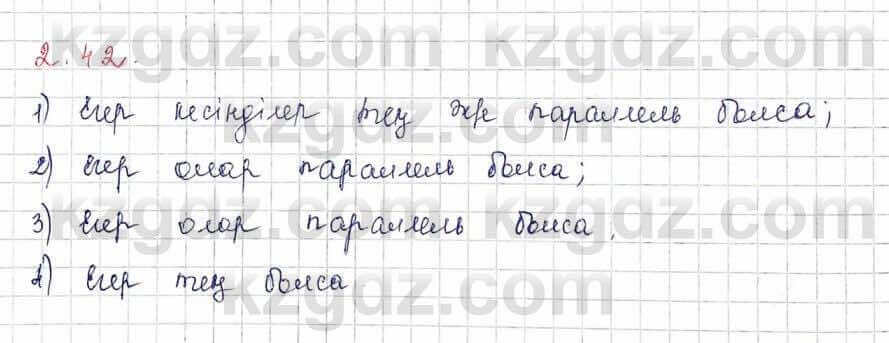 kzgdz.com kzgdz.com
2.42.
1) Егер кесінділер тең ж/е параллель болса;
kzgdz.com
2) Егер олар параллель болса;
kzgdz.com kzgdz.com
3) Егер олар параллель болса.
4) Егер тең болса
kzgdz.com